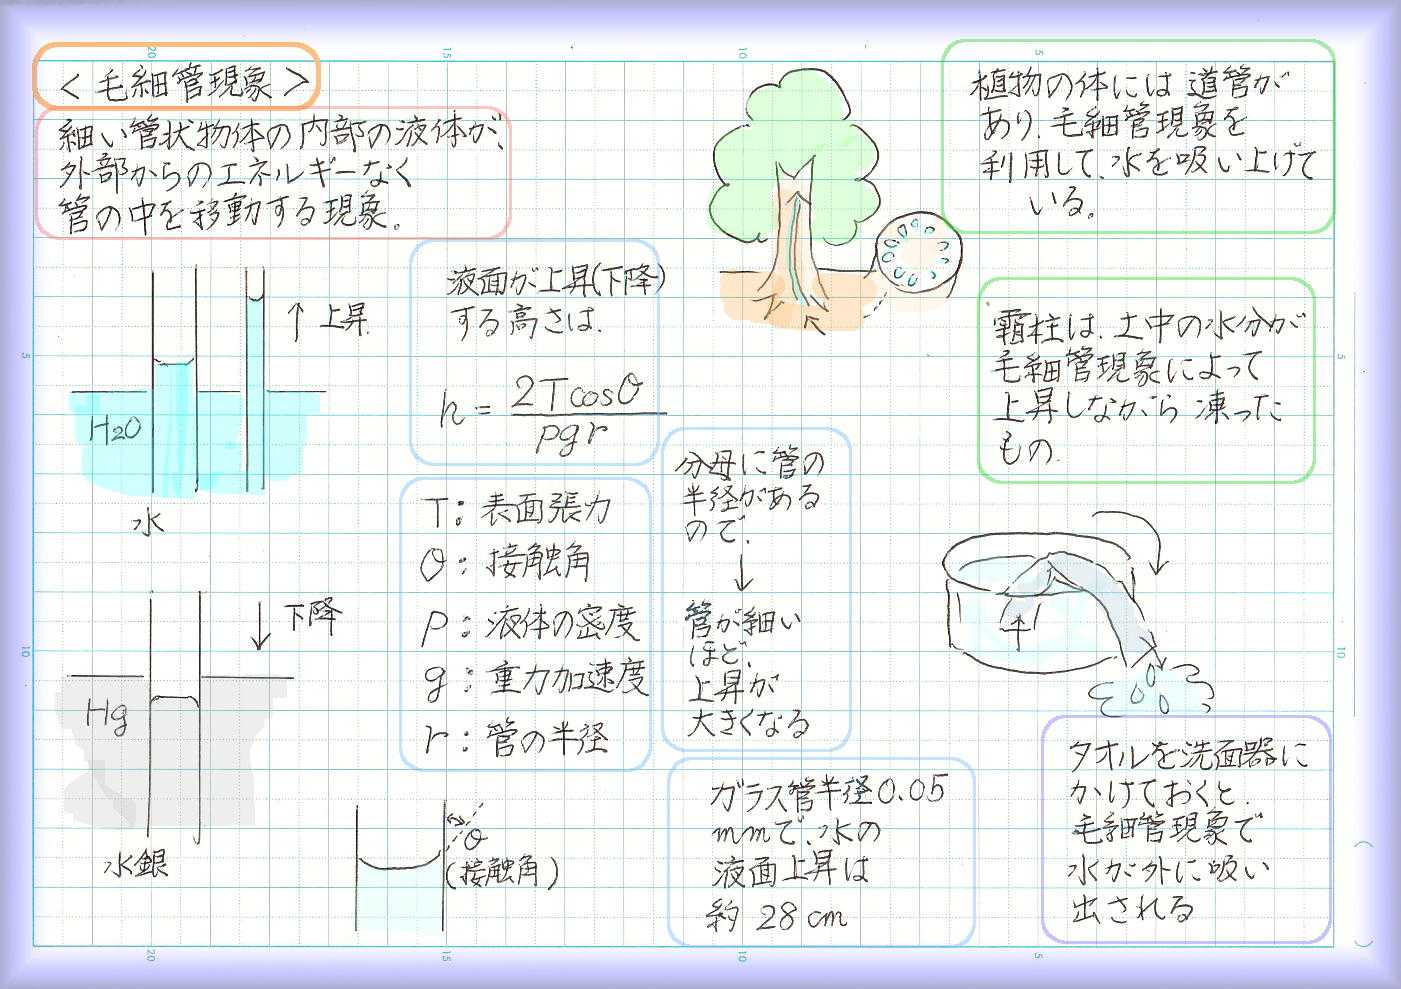 <毛細管現象>
細い管状物体の内部の液体が、
外部からのエネルギーなく
管の中を移動する現象。
↑上昇
H2O
水
↓下降
Hg
水銀
液面が上昇(下降)
する高さは、
h = 2Tcosθ
ρgr
T: 表面張力
θ: 接触角
ρ: 液体の密度
g: 重力加速度
r: 管の半径
θ
(接触角)
分母に管の
半径がある
ので、
↓
管が細い
ほど、
上昇が
大きくなる
ガラス管半径0.05
mmで、水の
液面上昇は
約 28cm
植物の体には 道管が
あり、毛細管現象を
利用して、水を吸い上げて
いる。
霜柱は、土中の水分が
毛細管現象によって
上昇しながら 凍った
もの。
タオルを洗面器に
かけておくと、
毛細管現象で
水が外に吸い
出される
20
15
10
5
5
10
5
10
20
15
10
5